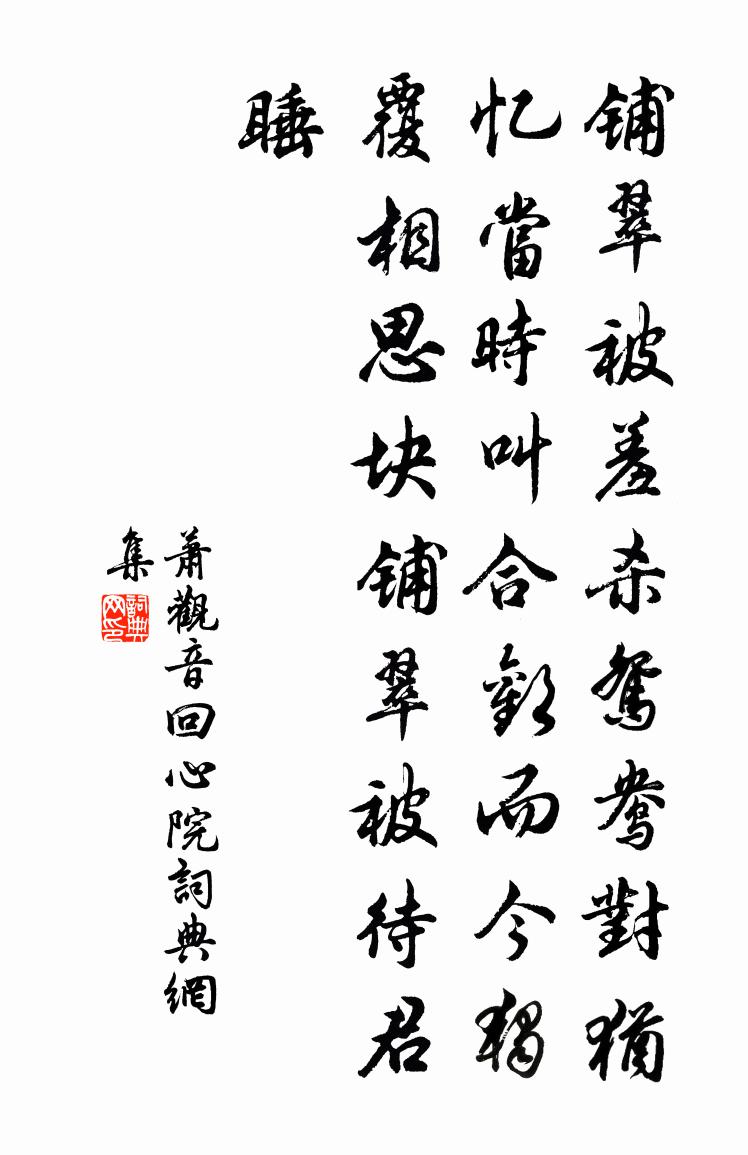 铺翠被羞杀鸳鸯對猶
忆當時叫合歡而今獨
覆相思块铺翠被待君
睡
萧觀音回心院詞典網
集
詞典网印